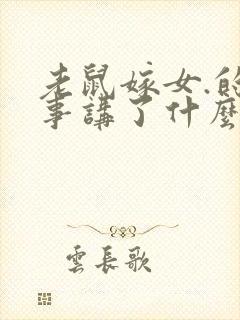 老鼠嫁女.的
事講了什麼
雲長歌